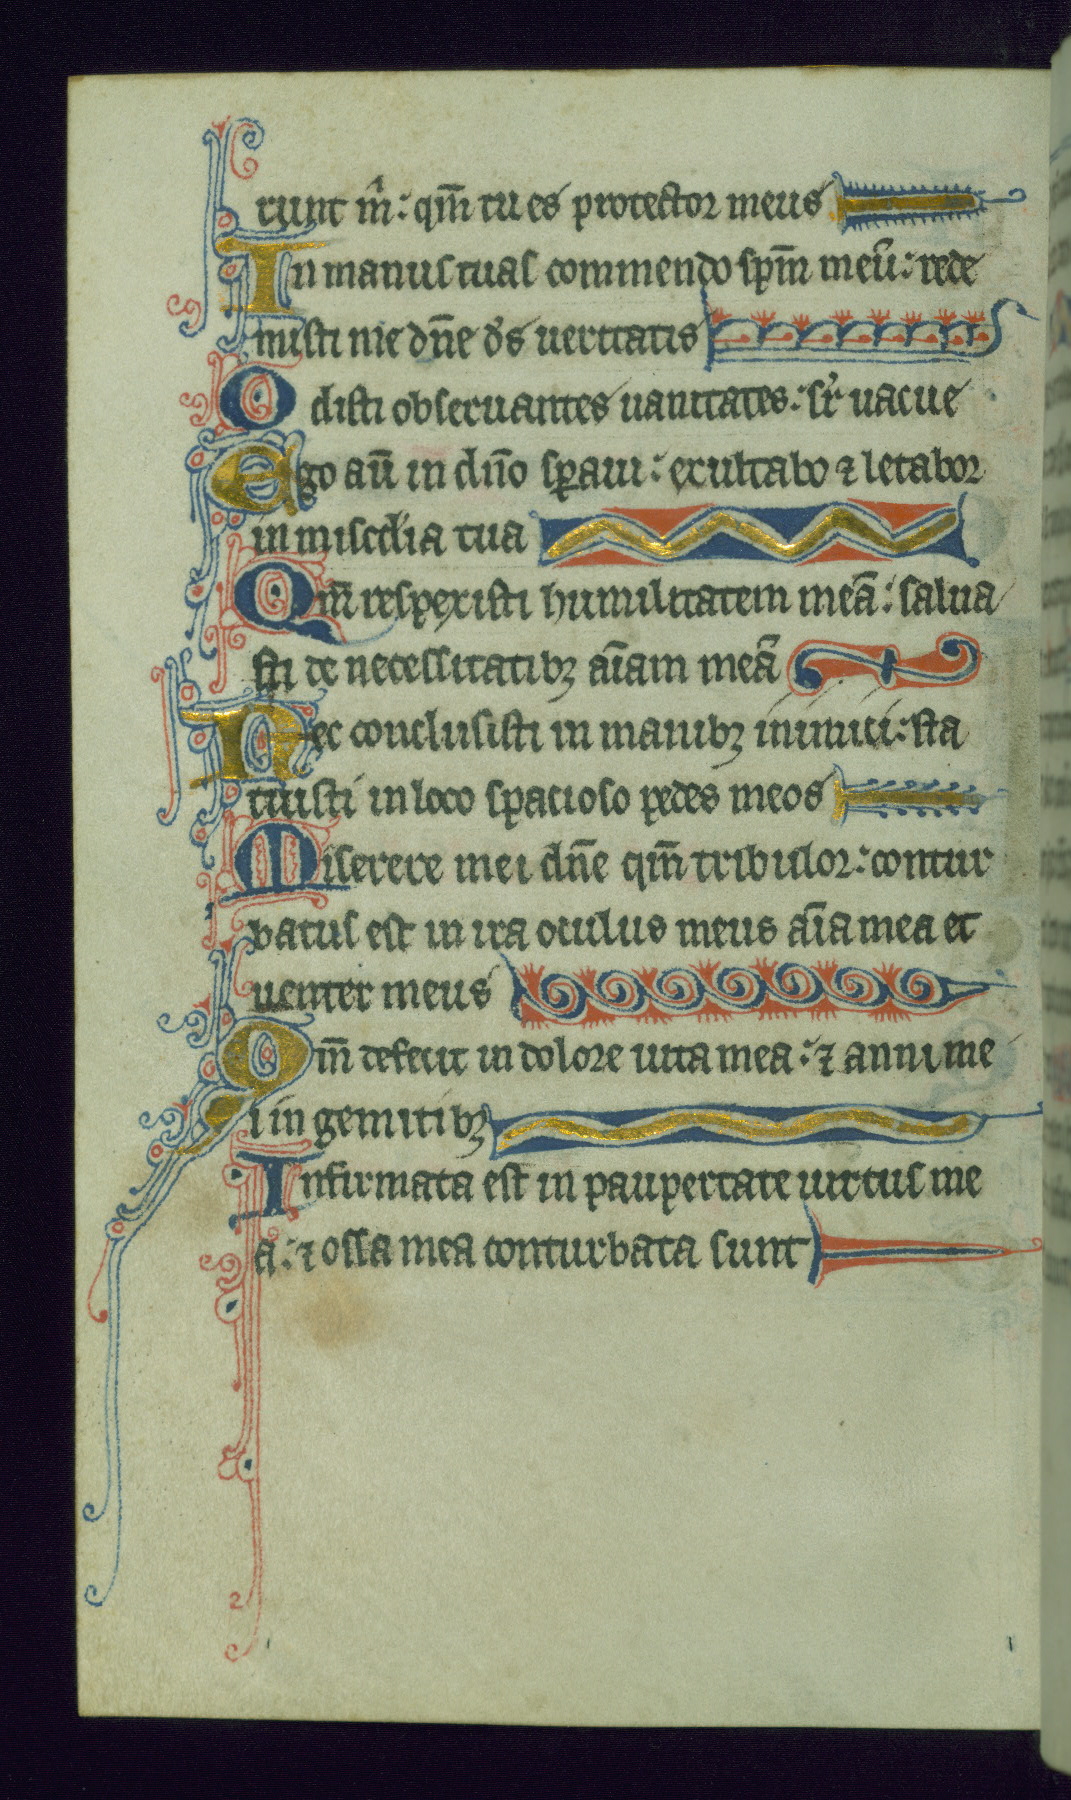 runt m̄: qm̄ tu es protector meus
In manus tuas commendo sp̄m meū: rede
misti me dn̄e ds̄ ueritatis
Odisti obseruantes uanitates: sr̄ uacue
Ego aū in dn̄o sꝑaui: exultabo ⁊ letabor
in misc̄dia tua
Qm̄ respexisti humilitatem meā: salua
sti de necessitatibꝫ aīam meā
Nec conclusisti in manibꝫ inimici: sta
tuisti in loco spacioso pedes meos
Miserere mei dn̄e qm̄ tribulor: contur
batus est in ira oculus meus aīa mea et
uenter meus
Qm̄ defecit in dolore uita mea: ⁊ anni me
i in gemitibꝫ
Infirmata est in paupertate uirtus me
a: ⁊ ossa mea conturbata sunt